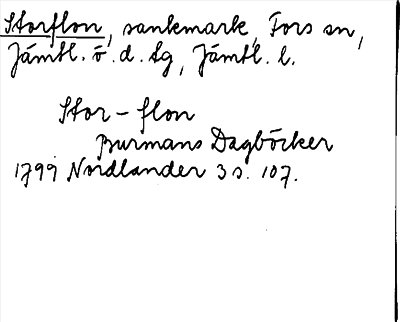 Storflon, sankmark, Fors sn,
Jämtl. ö. d. tg, Jämtl. l.
Stor-flon
Burmans Dagböcker
1799 Nordlander 3 s. 107.